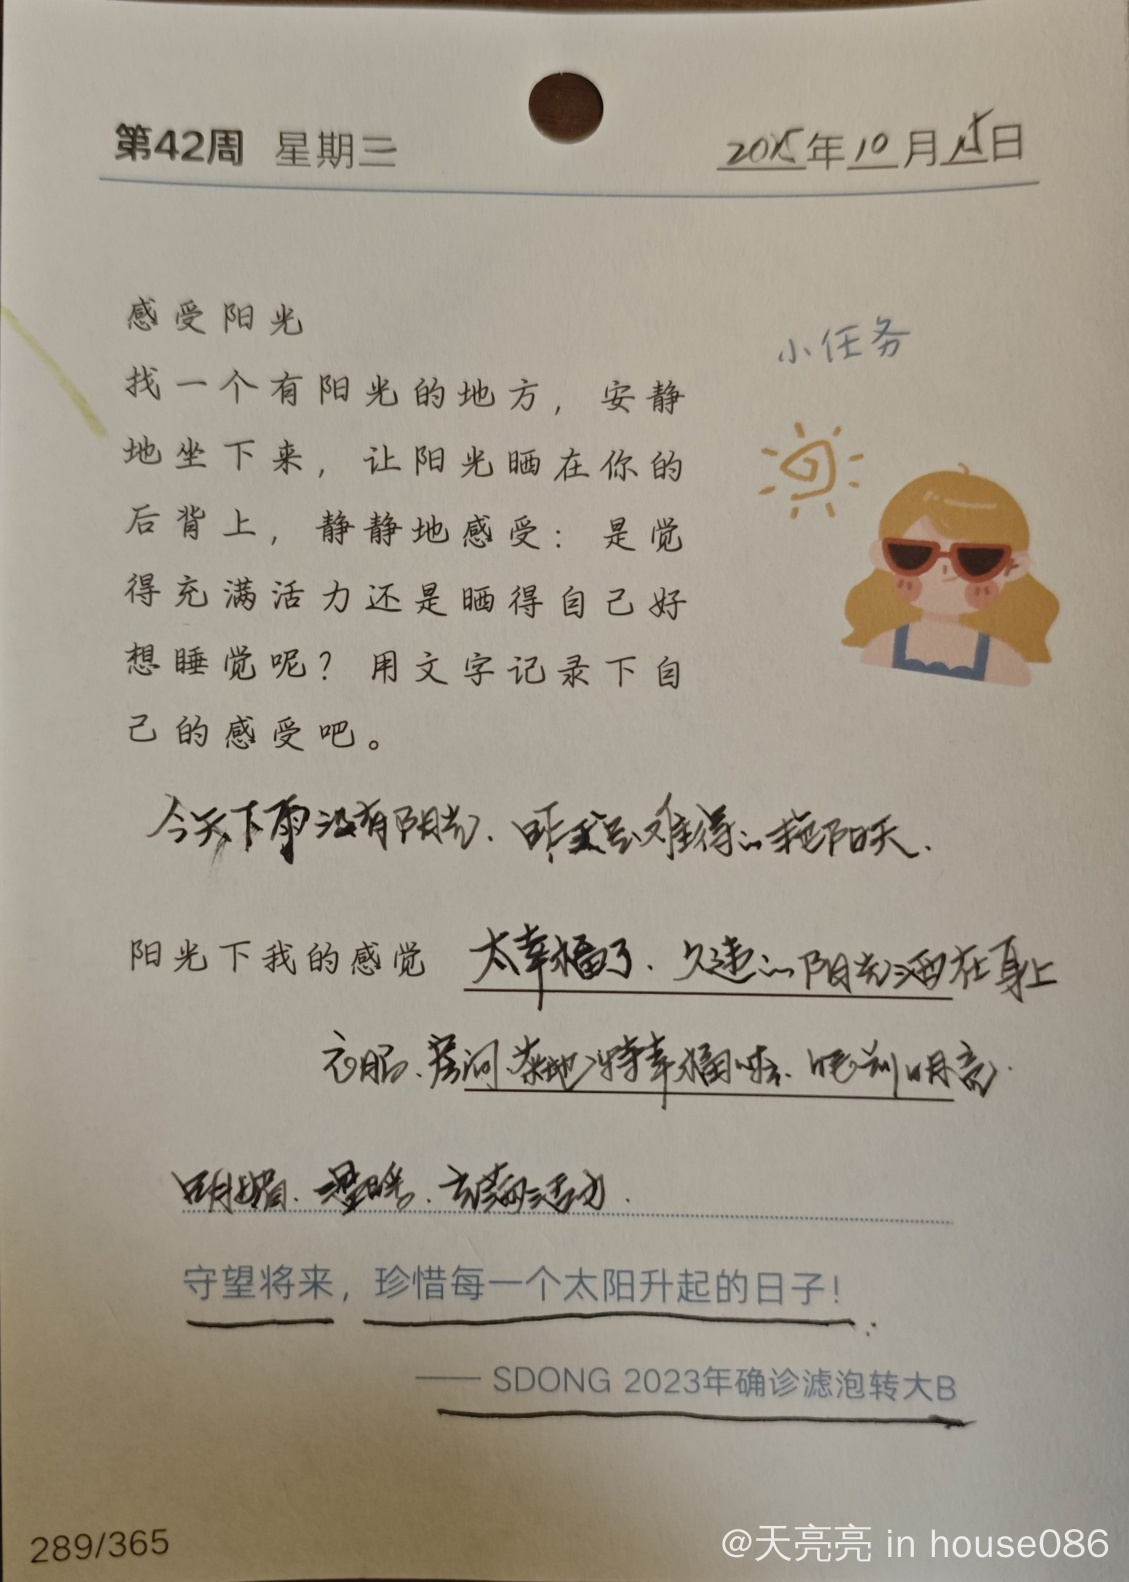 第42周 星期三 2025年10月15日
感受阳光
小任务
找一个有阳光的地方，安静
地坐下来，让阳光晒在你的
后背上，静静地感受：是觉
得充满活力还是晒得自己好
想睡觉呢？用文字记录下自
己的感受吧。
今天下雨没有阳光. 昨天是难得的艳阳天.
阳光下我的感觉 太幸福了. 久违的阳光洒在身上
衣服. 房间 地 特幸福 明亮.
明媚. 温暖. 充满活力.
守望将来，珍惜每一个太阳升起的日子！
—— SDONG 2023年确诊滤泡转大B
289/365
@天亮亮 in house086